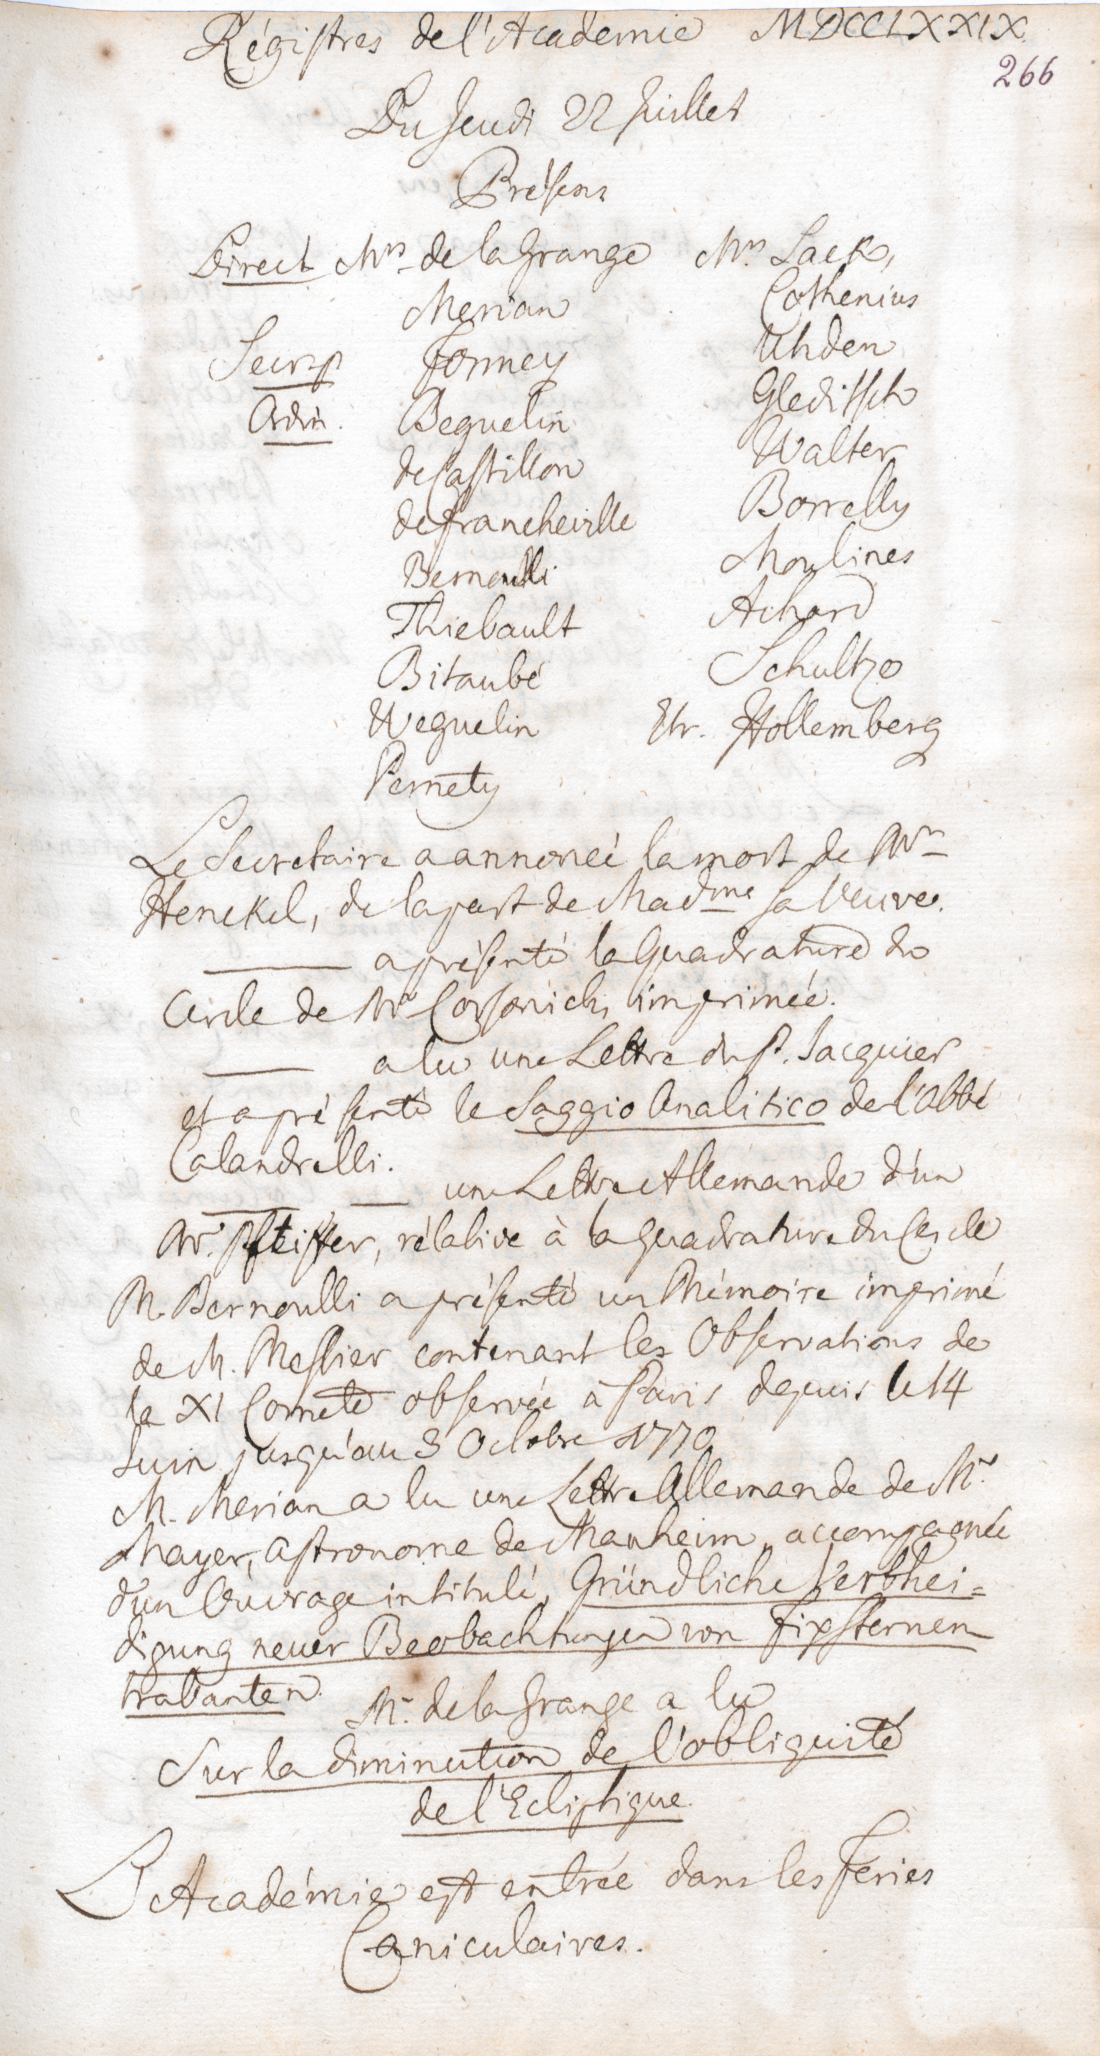 Régistres de l'Académie MDCCLXXIX
266
Du Jeudi 22 Juillet
Présens
Direct Mrs de la Grange
Merian
Secr. p. Formey
Adm. Beguelin
de Castillon
de Francheville
Bernoulli
Thiebault
Bitaubé
Weguelin
Pernety
Mrs Sack,
Cothenius
Uhden
Gleditsch
Walter
Borrelly
Moulines
Achard
Schultze
Etr. Hollemberg
Le Secretaire a annoncé la mort de Mr
Henckel, de la part de Madme sa Veuve.
——— a présenté la Quadrature du
Cercle de Mr imprimée.
——— a lu une Lettre du P. Jacquier
et a présenté le Saggio Analitico de l'Abbé
Calandrelli.
——— une Lettre Allemande d'un
Mr. Pfeiffer, rélative à la Quadrature du Cercle
M. Bernoulli a présenté un Mémoire imprimé
de M. Messier contenant les Observations de
la XI Comete observée à Paris depuis le 14
Juin jusqu'au 3 Octobre 1770
M. Merian a lu une Lettre Allemande de Mr.
Mayer, Astronome de Manheim, accompagnée
d'un Ouvrage intitulé, Gründliche Verthei=
digung neuer Beobachtungen von Fixsternen
trabanten.
Mr. de la Grange a lu
Sur la diminution de l'obliquité
de l'Ecliptique.
L'Académie est entrée dans les Feries
Caniculaires.